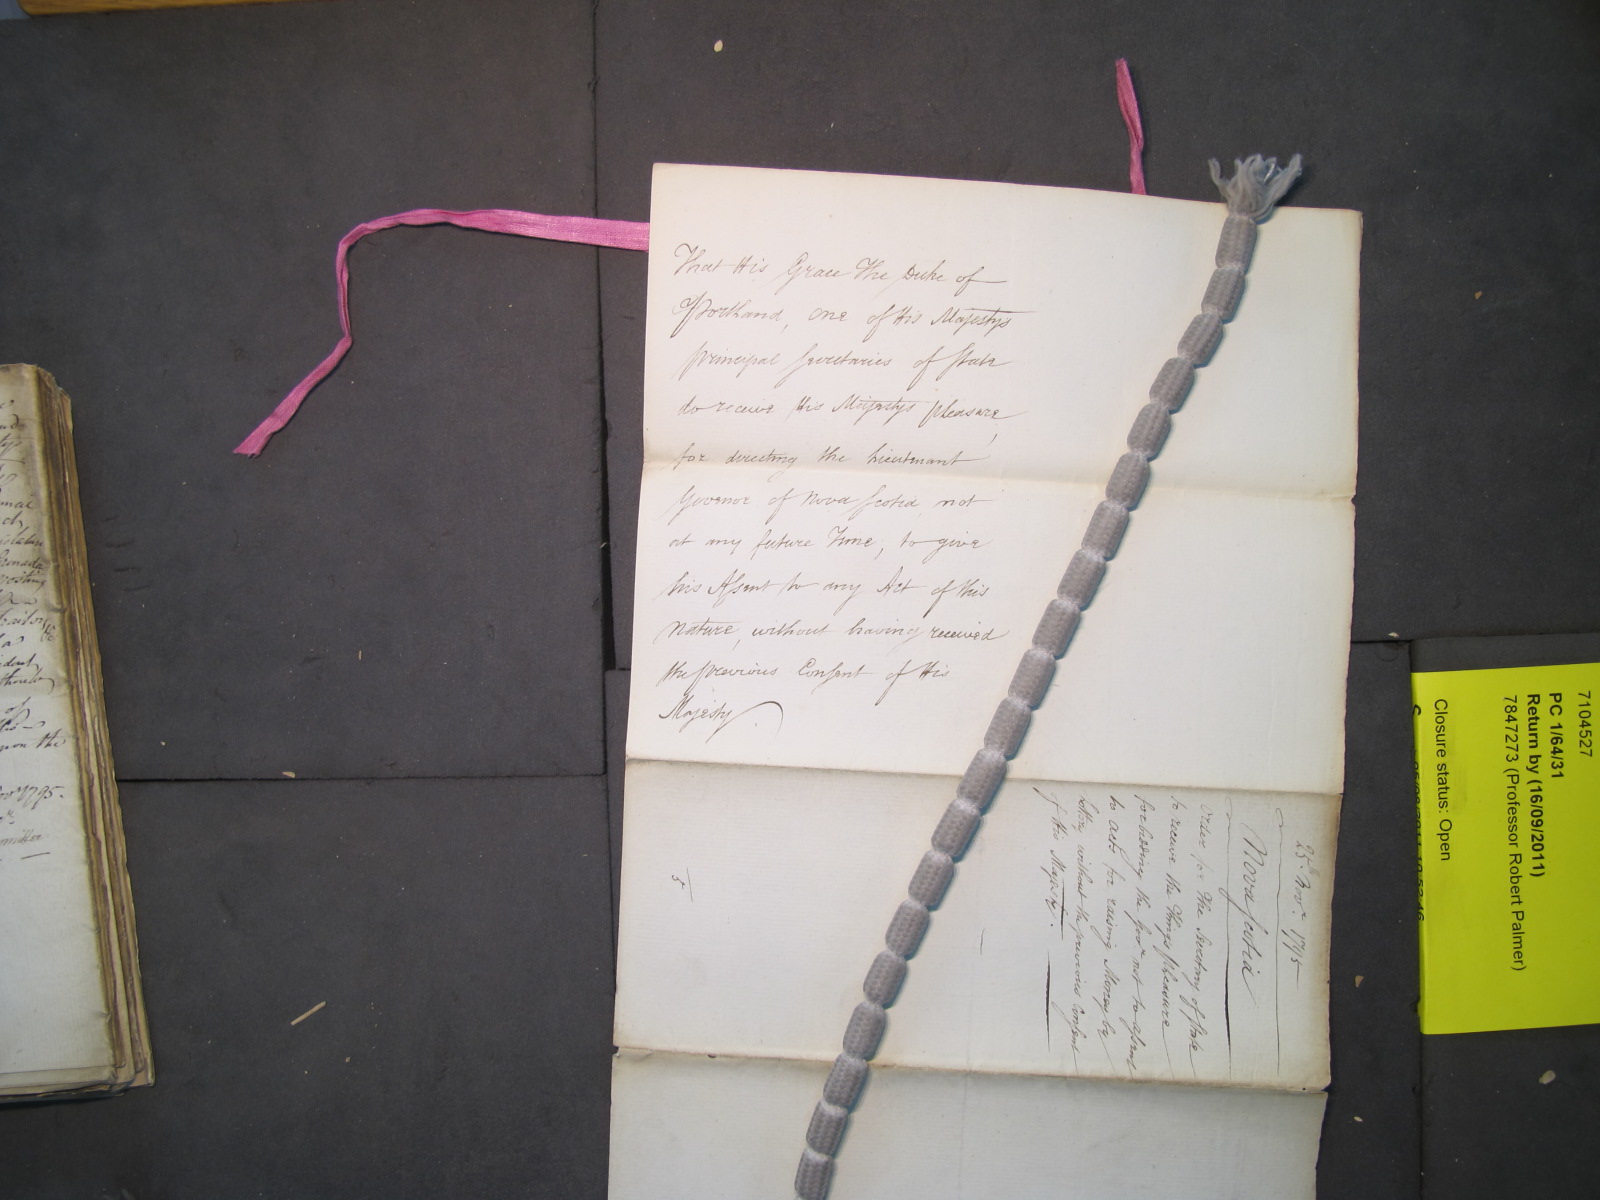 That His Grace The Duke of
Portland, one of His Majestys
principal Secretaries of State
do receive His Majestys pleasure,
for directing the Lieutenant
Governor of Nova Scotia, not
at any future Time, to give
his Assent to any Act of this
nature, without having received
the previous Consent of His
Majesty
25th Novr. 1795
Nova Scotia
Order for The Secretary of State
to receive the Kings pleasure
forbidding the Govr. not to assent
to acts for raising Money by
Lottery without the previous Consent
of His Majesty.
5
7104527
PC 1/64/31
Return by (16/09/2011)
7847273 (Professor Robert Palmer)
Closure status: Open
upon the
Novr 1795.